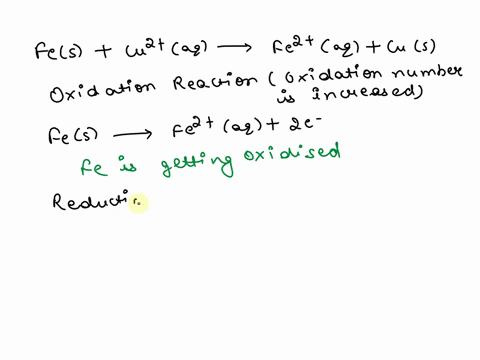 Fe(s) + Cu²⁺(aq) ⟶ Fe²⁺(aq) + Cu(s)
Oxidation Reaction (Oxidation number
is increased)
Fe(s) ⟶ Fe²⁺(aq) + 2e⁻
Fe is getting oxidised
Reducti